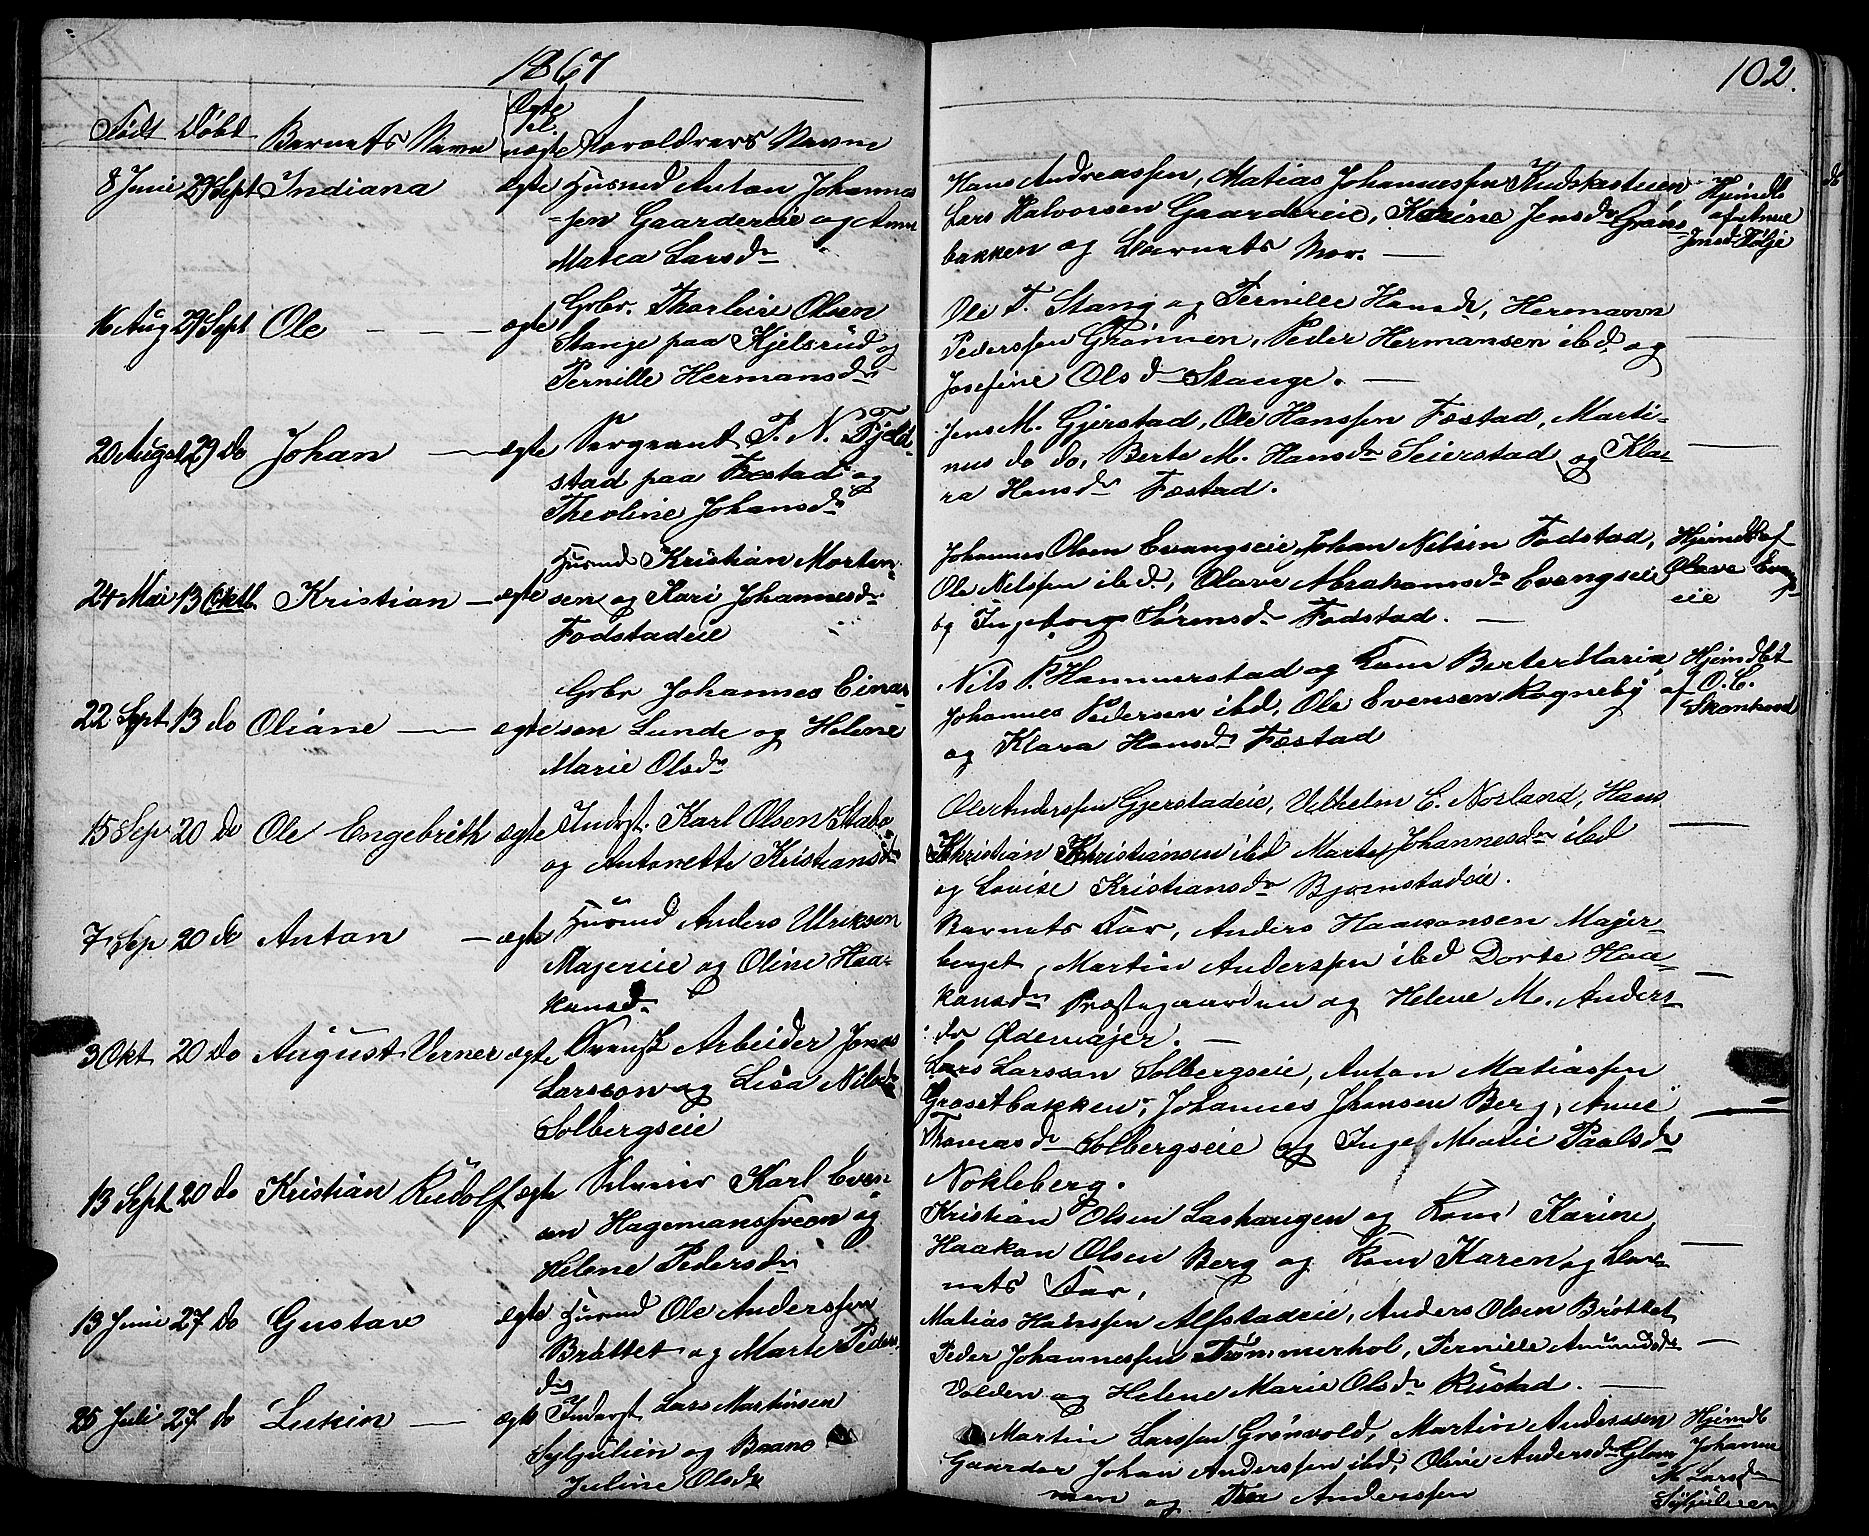 1867
102.
Født Døbt Barnets Navn Ægte el. uægte Foroldrers Navne
8 Juni 29 Sept Indiana ægte Husmd Anton Johannes-
sen Gaardereie og Anne
Matea Larsdr
Hans Andreassen, Matias Johannessen Kudskastuen,
Lars Halvorsen Gaardereie, Karine Jensdr Grøns-
bakken og Barnets Mor. —
Hjemdb
af Anne
Jensd. Følje
16 Aug 29 Sept Ole — — — ægte Grbr. Thorleie Olsen
Stange paa Kjelsrud og
Pernille Hermansdr
Ole T. Stang og Pernille Hansdr, Hermann
Pederssen Grønnen, Peder Hermansen ibd og
Josefine Olsd Stange. —
20 August 29 do Johan — ægte Sergeant P. N. Fjeld-
stad paa Fæstad og
Theoline Johansdr
Jens M. Gjerstad, Ole Hanssen Fæstad, Marti-
nus do do, Berte M. Hansdr Seierstad og Kla-
ra Hansdr Fæstad.
24 Mai 13 Oktb Kristian — ægte Husmd Kristian Morten-
sen og Kari Johannesdr
Fodstadeie
Johannes Olsen Evangseie, Johan Nilsen Fodstad,
Ole Nilssen ibd, Olave Abrahamsdr Evengseie,
og Ingeborg Sørensdr Fodstad. —
Hjemdb af
Olave Evang-
eie
22 Sept 13 do Oliane — ægte Grbr Johannes Einar-
sen Lunde og Helene
Marie Olsdr
Nils P. Hammerstad og Kone Berte Maria,
Johannes Pedersen ibd, Ole Evensen Rogneby,
og Klara Hansdr Fæstad
Hjemdbt
af O. C.
15 Sep 20 do Ole Engebrith ægte Inderst. Karl Olsen Stabo
og Antonette Kristiansdr
Ole Anderssen Gjerstadeie, Vilhelm C. Norland, Hans
Kristian Kristiansen ibd Marte Johannesdr ibd
og Lovise Kristiansdr Bjørnstadeie.
7 Sep 20 do Anton — ægte Husmd Anders Ulriksen
Majereie og Oline Haa-
kansdr
Barnets Far, Anders Haakansen Majer-
berget, Martin Anderssen ibd Dorte Haa-
kansdr Præstegaarden og Helene M. Anders-
dr Ødemajer. —
3 Okt 20 do August Verner ægte Svensk Arbeider Jonas
Larsson og Lisa Nilsdr
Solbergseie
Lars Larsson Solbergseie, Anton Matiassen
Grasetbakken, Johannes Jhansen Berg, Anne
Thomasdr Solbergseie og Inge Marie Paalsdr
Nokleberg.
13 Sept 20 do Kristian Rudolf ægte Selveier Karl Even-
sen Hagemansveen og
Helene Pedersdr
Kristian Olsen Lashaugen og Kone Karine
Haakan Olsen Berg og Kone Karen og Bar-
nets Far,
13 Juni 27 do Gustav ægte Husmd Ole Anderssen
Brøttet og Marte Peders-
dr
Matias Hanssen Alfstadeie, Anders Olsen Brøttet
Peder Johannessen Tømmerhol, Pernille Amundsdr
Volden og Helene Marie Olsdr Rustad. —
25 Juli 27 do Lukin — ægte Inderst Lars Martinsen
Syljulien og
Juline Olsdr
Martin Larssen Grønvold, Martin Anderssen
Gaarder Johan Anderssen ibd, Olivie Andersdr Glom-
men og Anderssen
Hjemdb
Johanne
M Larsdr
Syljulien